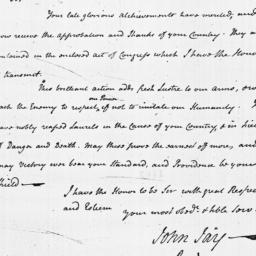 Your late glorious Atchievements have merited, and
now receive the approbation and Thanks of your Country. They a
contained in the enclosed act of Congress which I have the Hono
transmit.
This brilliant action adds fresh Lustre to our Arms, a
each the Enemy to respect our Power if not to imitate our Humanity.
ave nobly reaped Laurels in the Cause of your Country, & in
f Danger and Death. May these prove the earnest of more, and
may Victory ever bear your Standard, and Providence be your
Shield
I have the Honor to be Sir with great Respec
and Esteem
your most Obdt. & hble Serv
John Jay